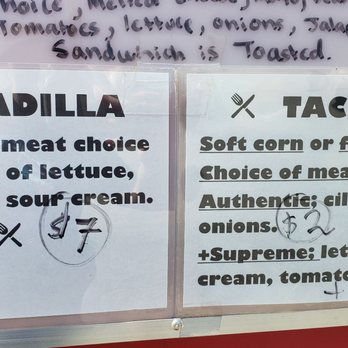 Choice, Melted
Tomatoes, lettuce, onions, Jalap
Sandwhich is Toasted.
ADILLA
meat choice
of lettuce,
sour cream.
$7
TAC
Soft corn or f
Choice of mea
Authentic; cil
onions. $2
+Supreme; let
cream, tomato
+